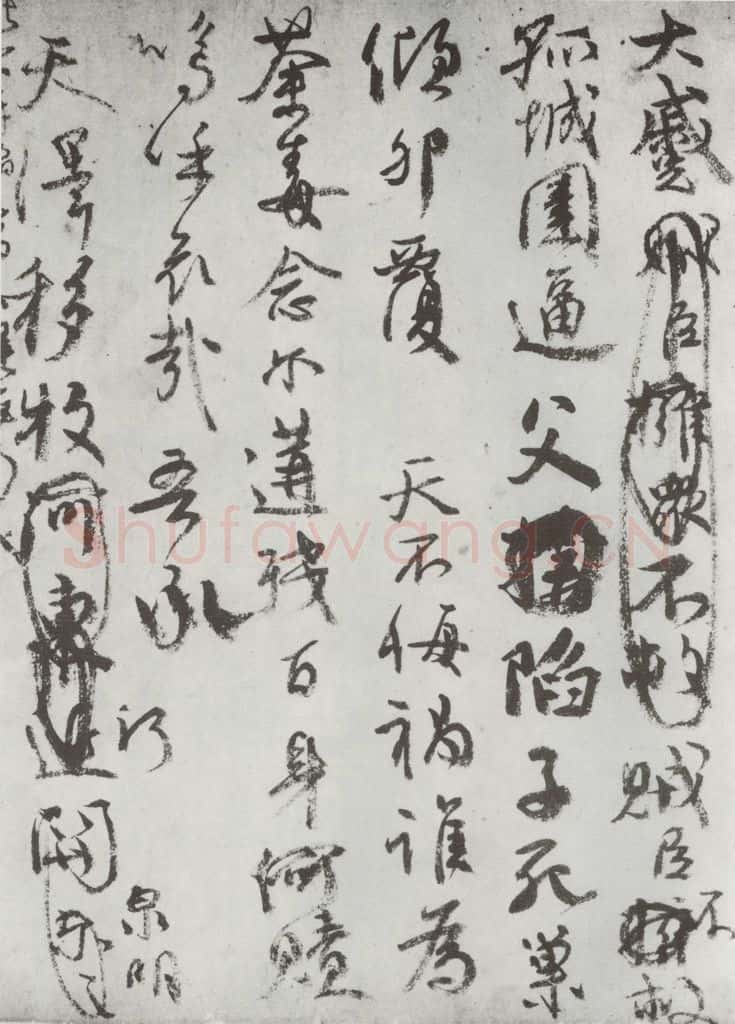 大蹙賊臣擁眾不救賊臣不救
孤城圍逼父陷子死巢
傾卵覆 天不悔禍誰為
荼毒念尒遘殘百身何贖
嗚乎哀哉吾承
泉明
天澤移牧河東近
Shufawang.CN